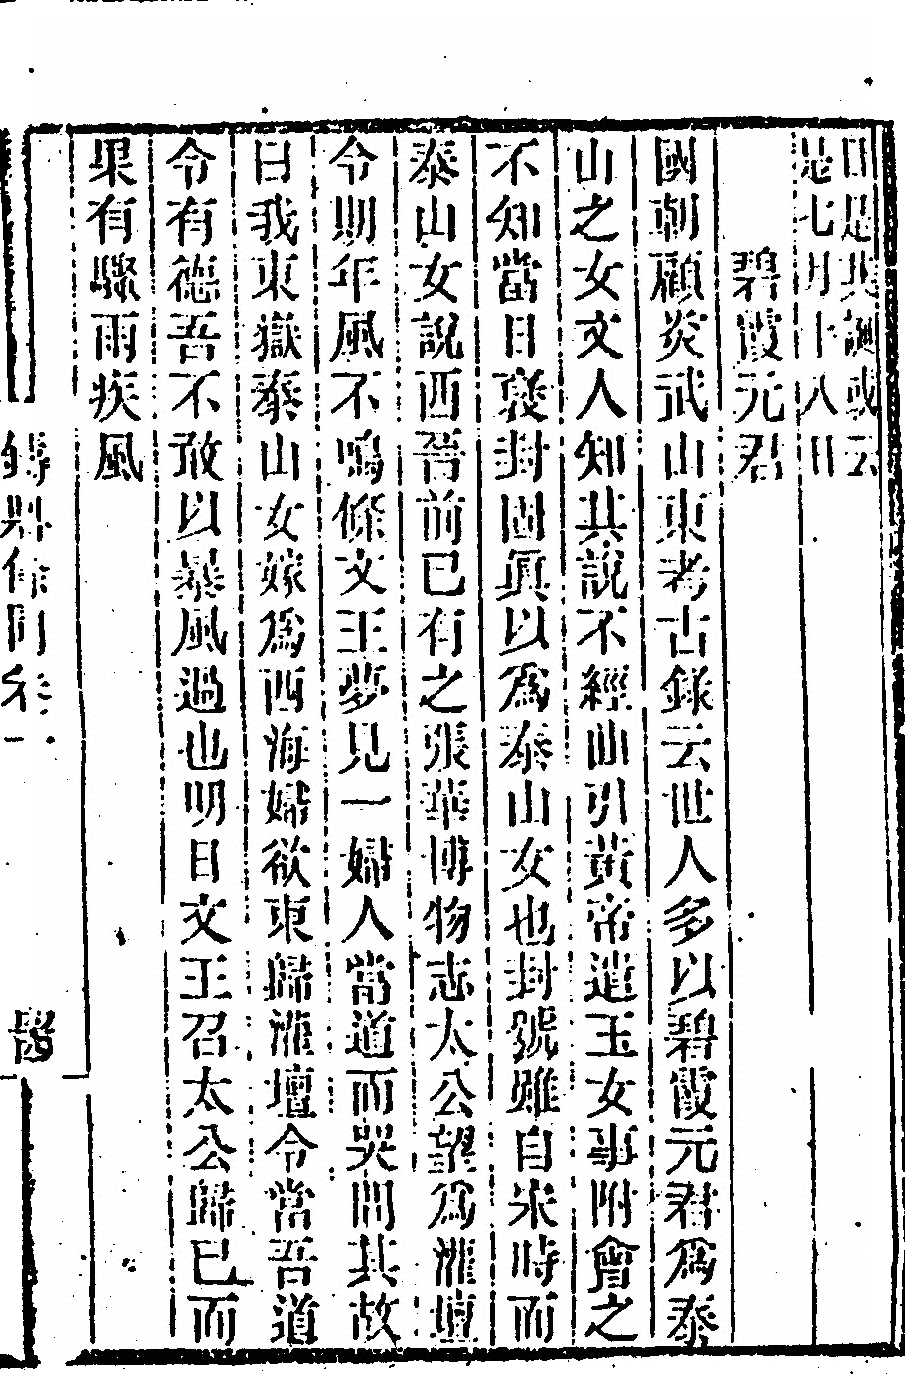 日是其誕或云
是七月十八日
碧霞元君
國朝顧炎武山東考古錄云世人多以碧霞元君爲泰
山之女文人知其說不經曲引黃帝遣玉女事附會之
不知當日褒封固眞以爲泰山女也封號雖自宋時而
泰山女說西晉前已有之張華博物志太公望爲灌壇
令期年風不鳴條文王夢見一婦人當道而哭問其故
曰我東嶽泰山女嫁爲西海婦欲東歸灌壇令當吾道
令有德吾不敢以暴風過也明日文王召太公歸已而
果有驟雨疾風